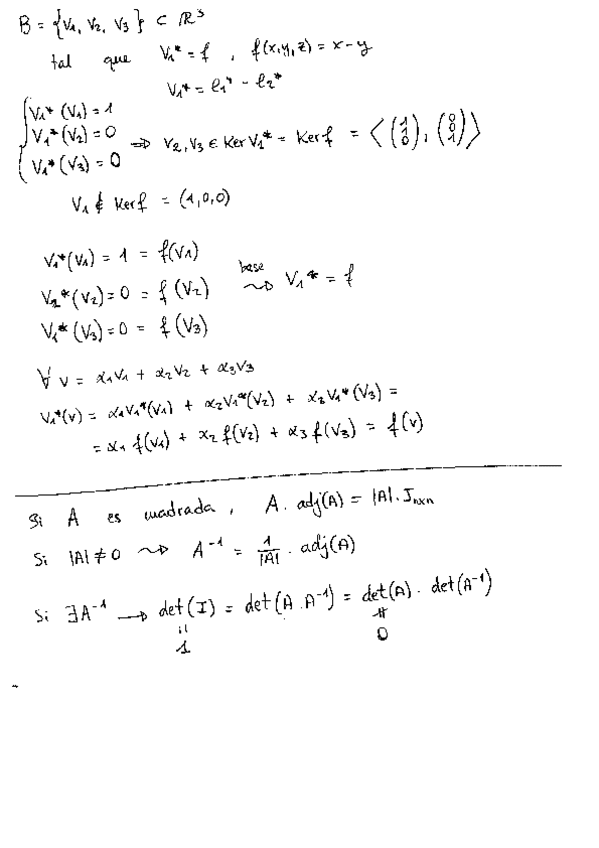 B = {V₁, V₂, V₃} ⊂ ℝ³
tal que V₁* = f , f(x,y,z) = x-y
V₁* = e₁* - e₂*
{ V₁*(V₁) = 1
V₁*(V₂) = 0
V₁*(V₃) = 0 ⇒ V₂, V₃ ∈ Ker V₁* = Ker f = ⟨(1 1 0), (0 0 1)⟩
V₁ ∉ Ker f = (1,0,0)
V₁*(V₁) = 1 = f(V₁)
V₂*(V₂) = 0 = f(V₂) base ⇝ V₁* = f
V₁*(V₃) = 0 = f(V₃)
∀ v = α₁V₁ + α₂V₂ + α₃V₃
V₁*(v) = α₁V₁*(V₁) + α₂V₁*(V₂) + α₃V₁*(V₃) =
= α₁ f(V₁) + α₂ f(V₂) + α₃ f(V₃) = f(v)
Si A es cuadrada , A. adj(A) = |A|. Inxn
Si |A| ≠ 0 ⇝ A⁻¹ = 1/|A| . adj(A)
Si ∃A⁻¹ → det(I) = det(A.A⁻¹) = det(A). det(A⁻¹)
= ≠
1 0